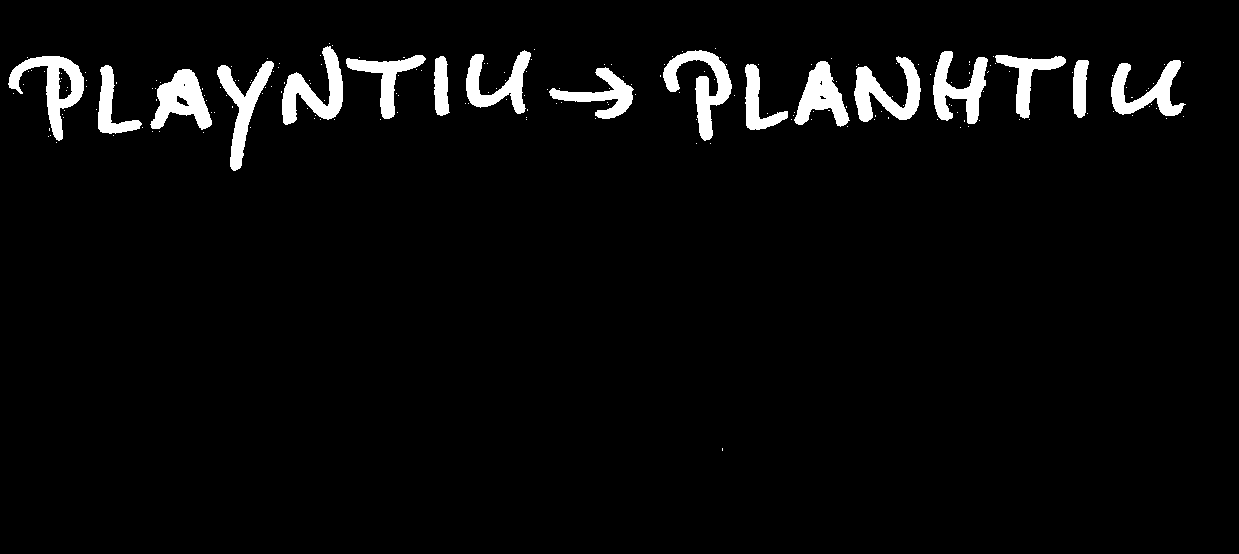 PLAYNTIU → PLANHTIU